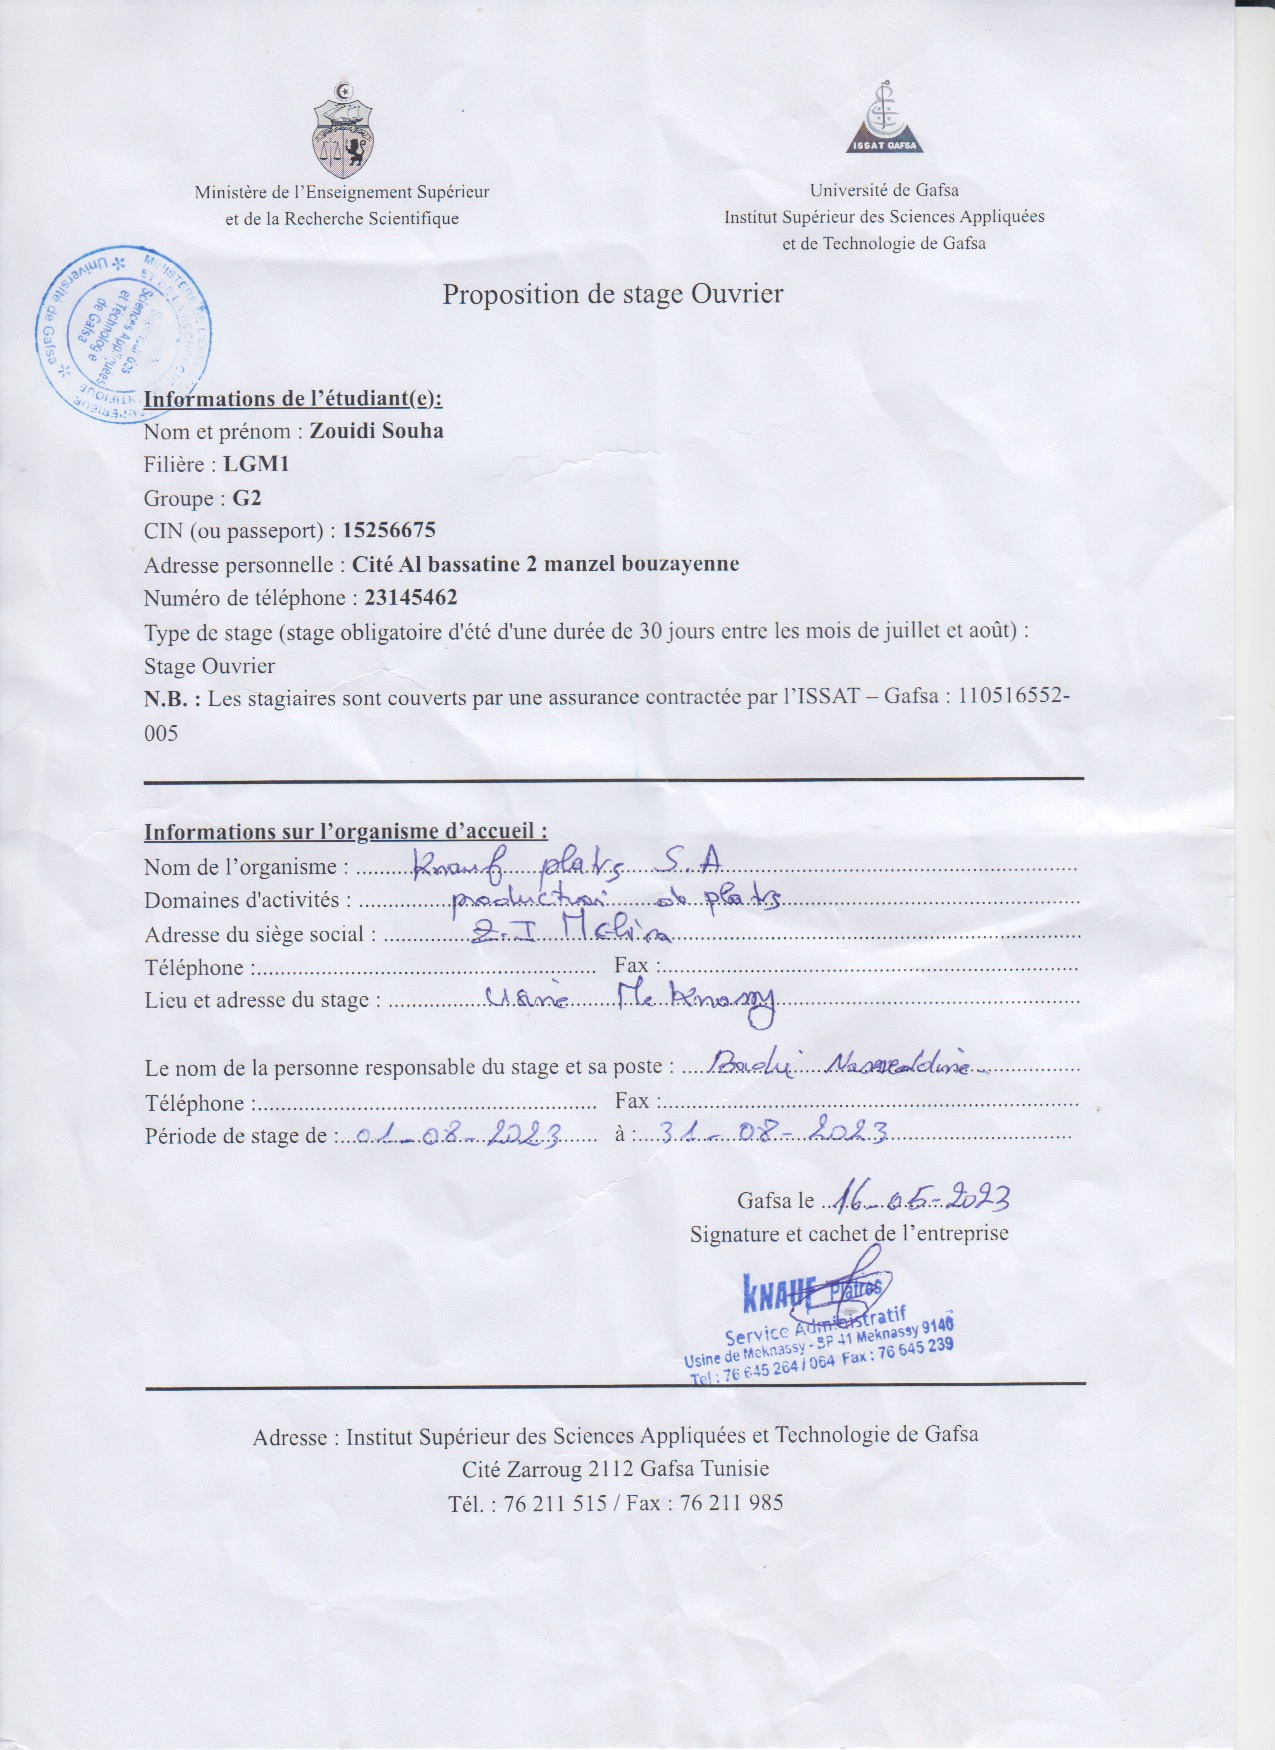 ISSAT GAFSA
Ministère de l'Enseignement Supérieur
et de la Recherche Scientifique
Université de Gafsa
Institut Supérieur des Sciences Appliquées
et de Technologie de Gafsa
Université de Gafsa
Sciences Appliquées
et Technologie
de Gafsa
Proposition de stage Ouvrier
Informations de l'étudiant(e):
Nom et prénom : Zouidi Souha
Filière : LGM1
Groupe : G2
CIN (ou passeport) : 15256675
Adresse personnelle : Cité Al bassatine 2 manzel bouzayenne
Numéro de téléphone : 23145462
Type de stage (stage obligatoire d'été d'une durée de 30 jours entre les mois de juillet et août) :
Stage Ouvrier
N.B. : Les stagiaires sont couverts par une assurance contractée par l'ISSAT – Gafsa : 110516552-
005
Informations sur l'organisme d'accueil :
Nom de l'organisme : Knauf S.A
Domaines d'activités : production de
Adresse du siège social : Z.I
Téléphone : Fax :
Lieu et adresse du stage : Usine Meknassy
Le nom de la personne responsable du stage et sa poste : Badri
Téléphone : Fax :
Période de stage de : 01-08-2023 à : 31-08-2023
Gafsa le 16-05-2023
Signature et cachet de l'entreprise
KNAUF Plâtres
Service Administratif
Usine de Meknassy - BP 41 Meknassy 9140
Tel : 76 645 264 / 064 Fax : 76 645 239
Adresse : Institut Supérieur des Sciences Appliquées et Technologie de Gafsa
Cité Zarroug 2112 Gafsa Tunisie
Tél. : 76 211 515 / Fax : 76 211 985